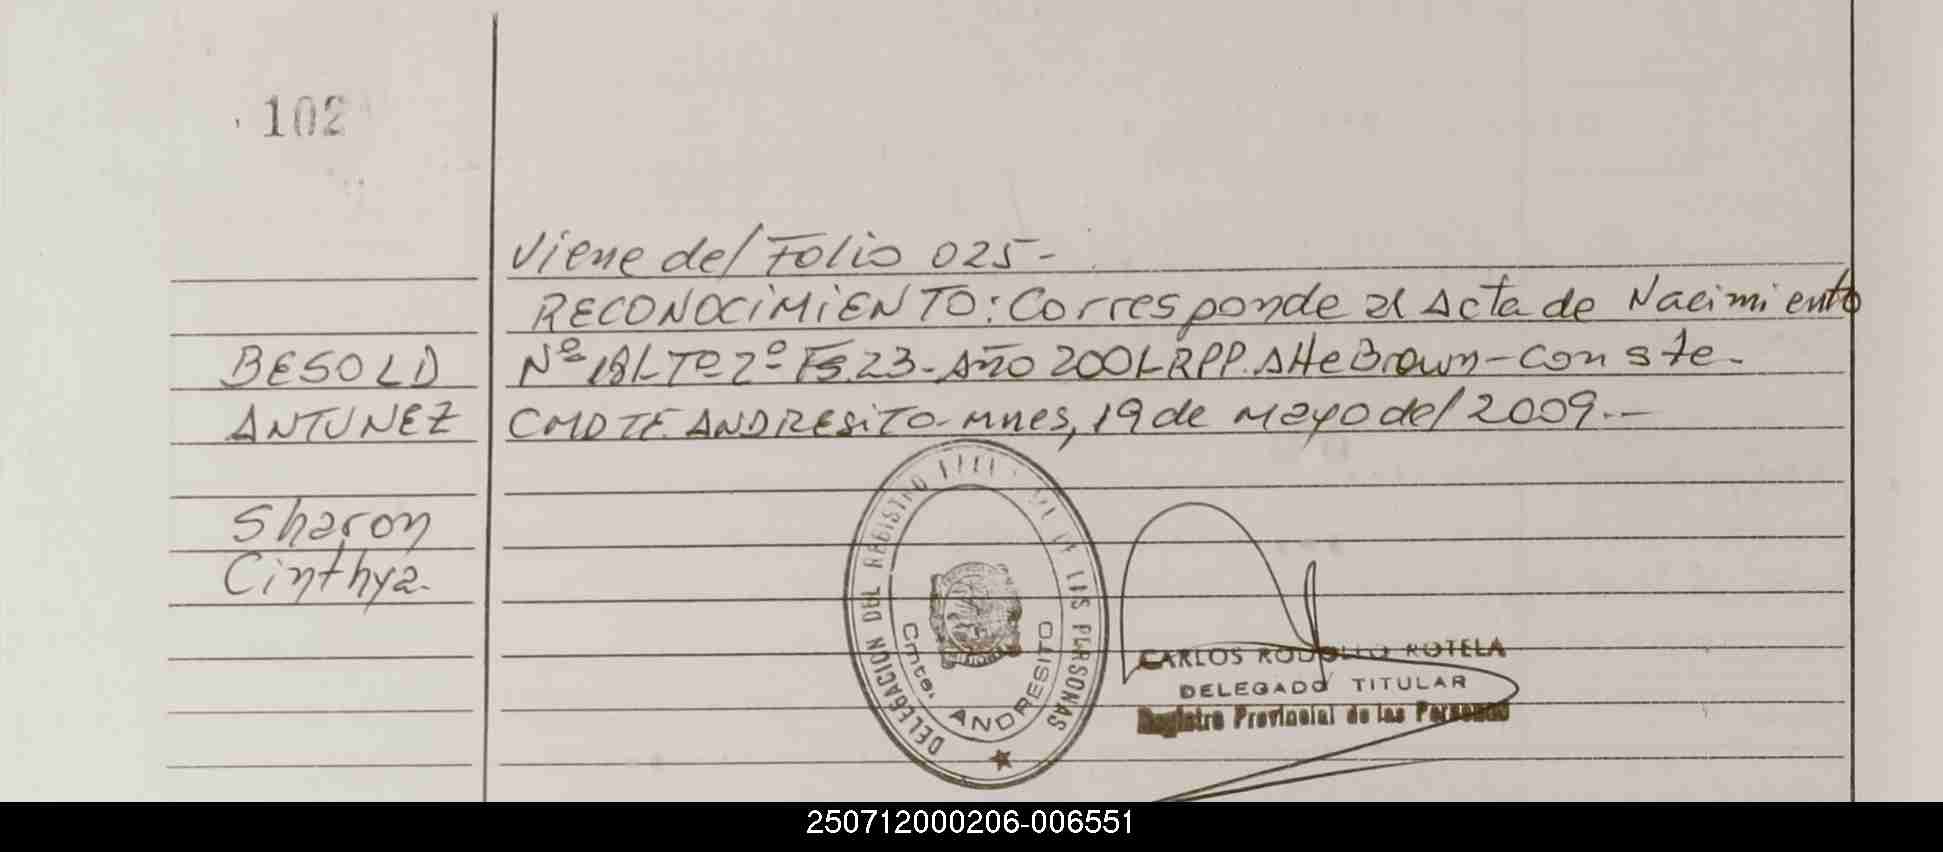 102
Viene del Folio 025-
RECONOCIMIENTO: Corresponde al Acta de Nacimiento
BESOLD
Nº 181- Tº 2º Fs. 23- Año 2001- RPP. Alte Brown - Conste-
ANTUNEZ
CMDTE ANDRESITO- mnes, 19 de Mayo del 2009.-
Sharon
Cinthya.
DELEGACION DEL REGISTRO DE LAS PERSONAS
Cmte. ANDRESITO
CARLOS RODOLFO ROTELA
DELEGADO TITULAR
Registro Provincial de las Personas
250712000206-006551